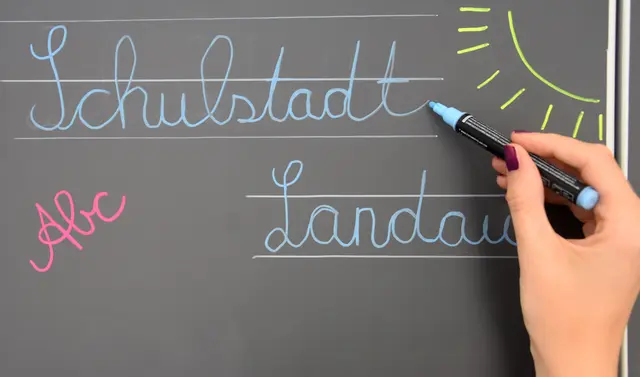 Schulstadt
Landau
Abc